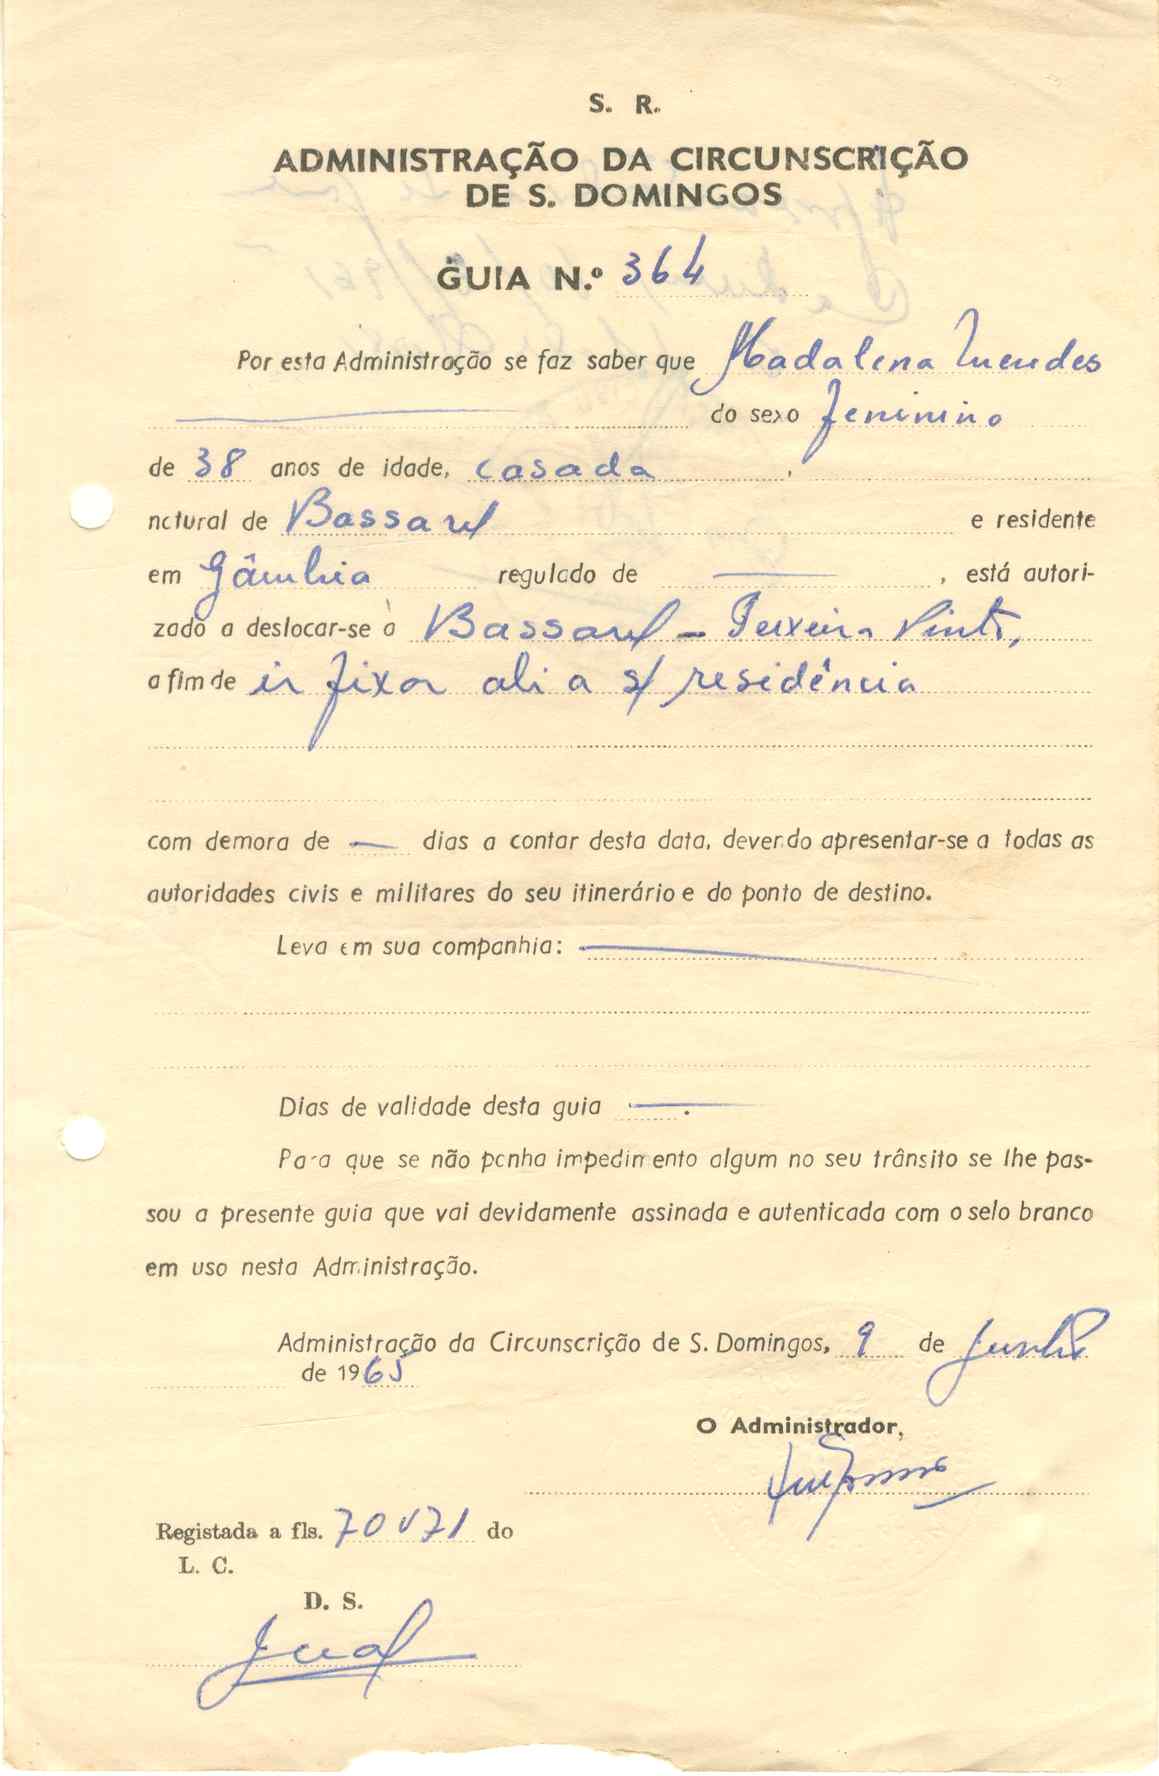 S. R.
ADMINISTRAÇÃO DA CIRCUNSCRIÇÃO
DE S. DOMINGOS
GUIA N.º 364
Por esta Administração se faz saber que Madalena Mendes
do sexo feminino
de 38 anos de idade, casada,
natural de Bassarel e residente
em Gâmbia regulado de —, está autori-
zado a deslocar-se à Bassarel - Teixeira Pinto,
a fim de ir fixar ali a s/ residência
com demora de — dias a contar desta data, devendo apresentar-se a todas as
autoridades civis e militares do seu itinerário e do ponto de destino.
Leva em sua companhia: —
Dias de validade desta guia —.
Para que se não ponha impedimento algum no seu trânsito se lhe pas-
sou a presente guia que vai devidamente assinada e autenticada com o selo branco
em uso nesta Administração.
Administração da Circunscrição de S. Domingos, 9 de Junho
de 1965
O Administrador,
Registada a fls. 70 v 71 do
L. C.
D. S.